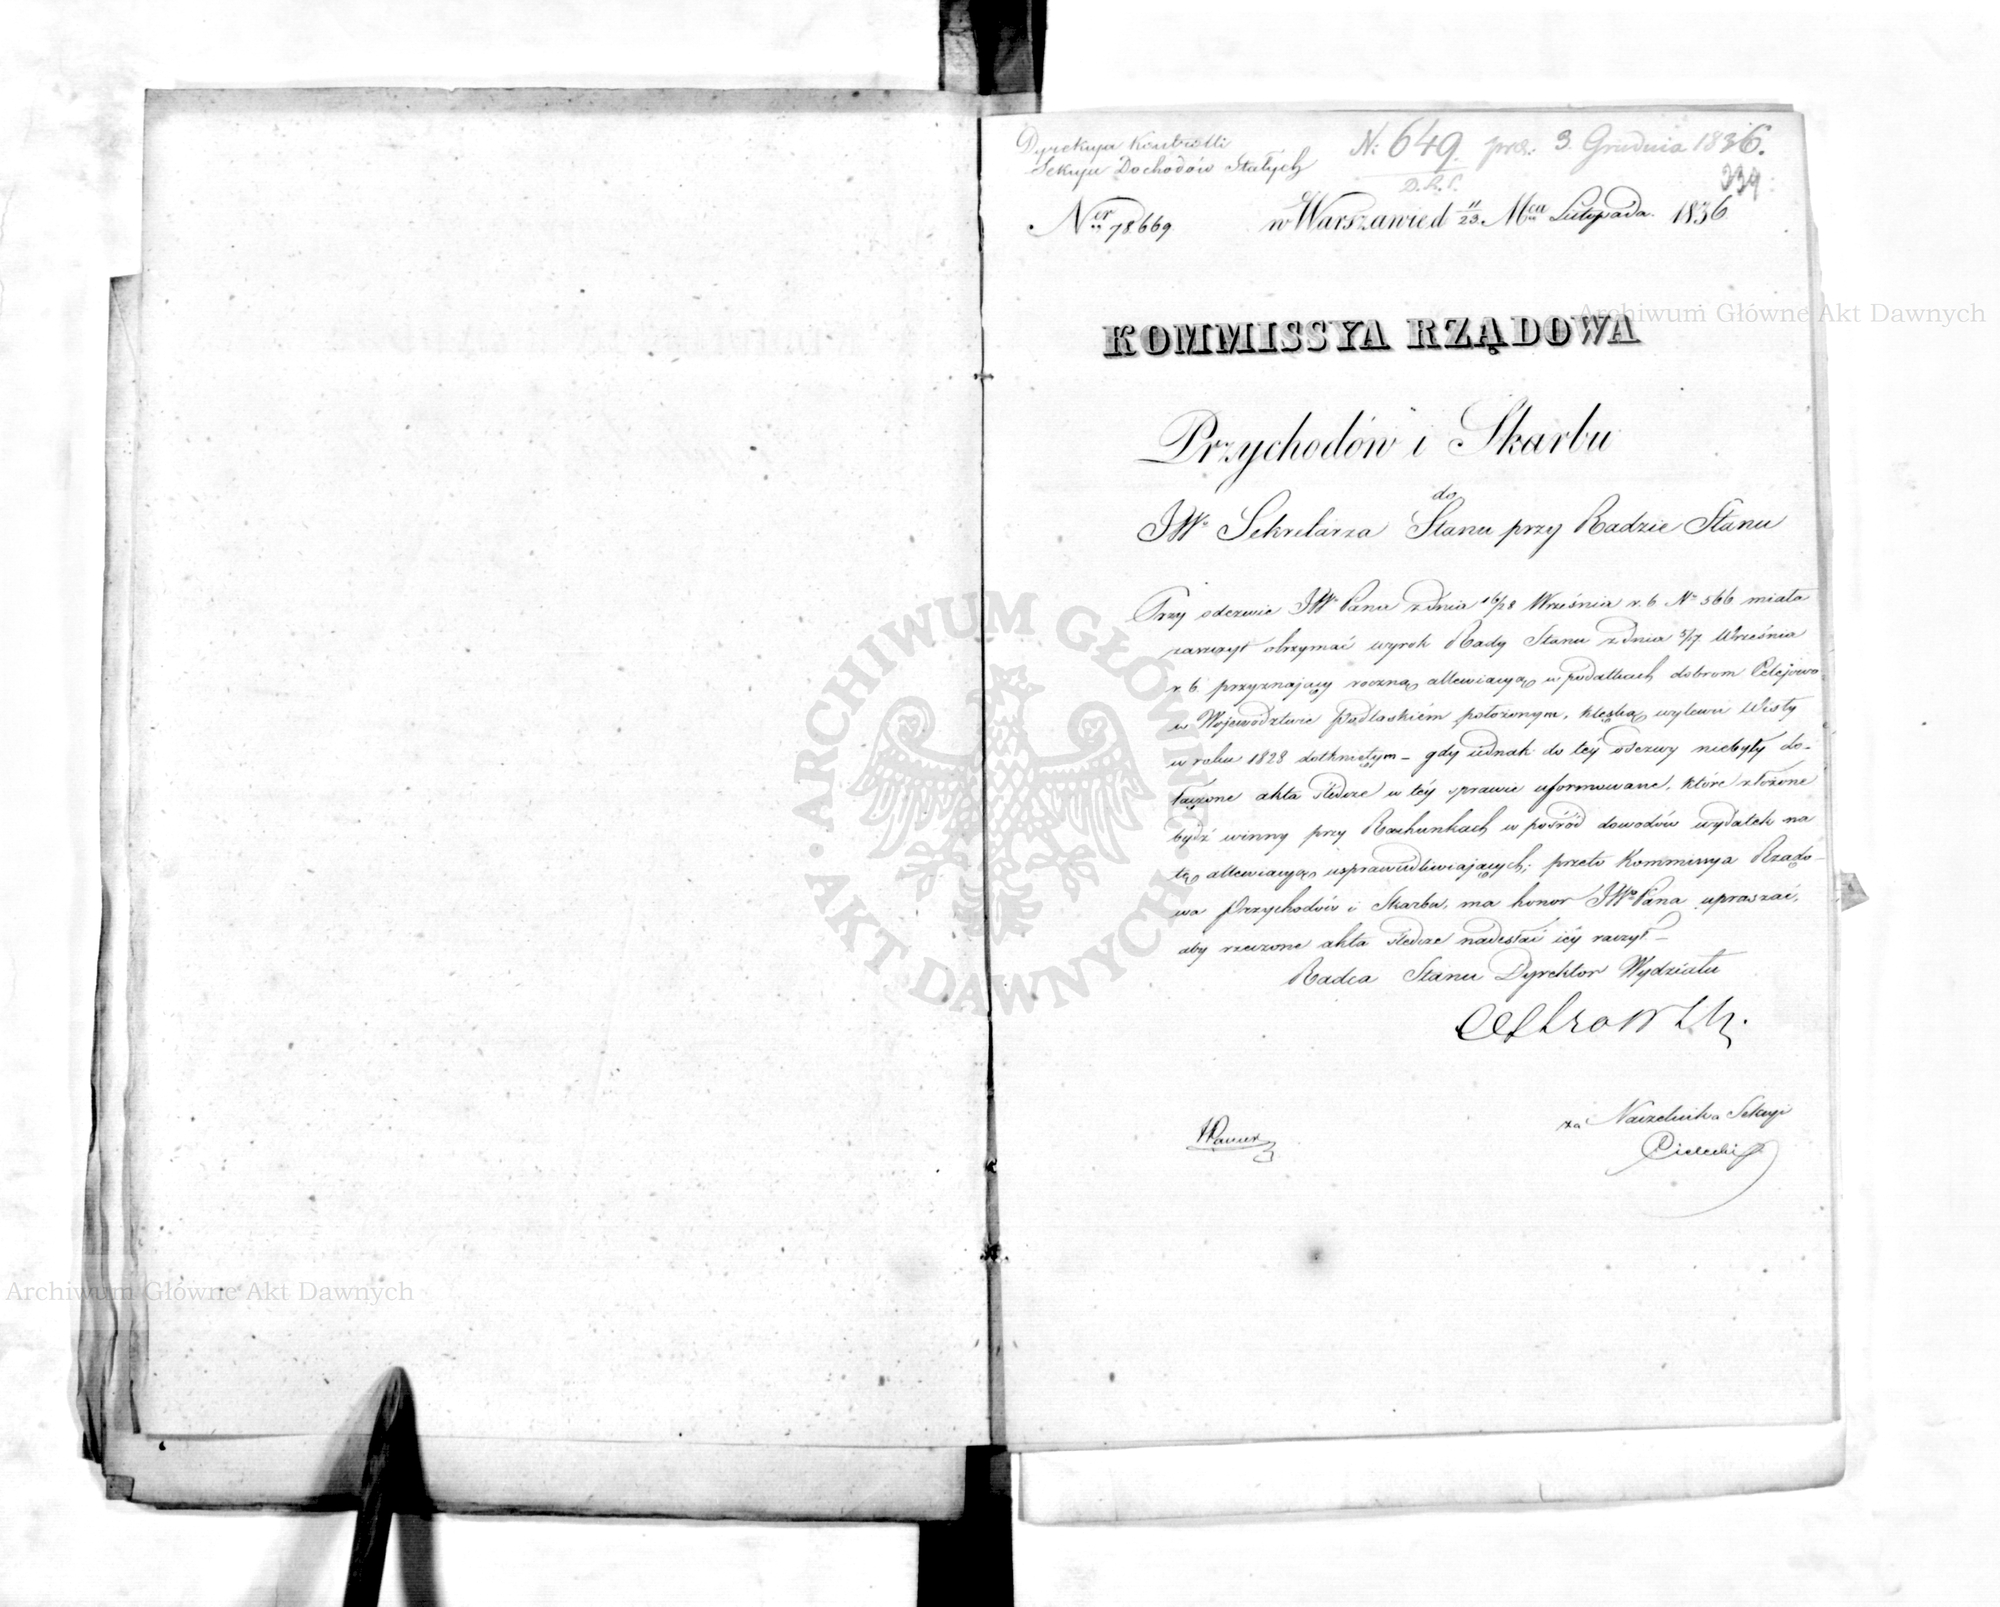 Dyrekcya Kontrolli
Sekcyu Dochodów Stałych
N: 649. prs: 3. Grudnia 1836.
D.R.S.
239.
Ner 78669
w Warszawie d 11/23. Mca Listopada. 1836
KOMMISSYA RZĄDOWA
Przychodów i Skarbu
do
JW° Sekretarza Stanu przy Radzie Stanu
Przy odezwie JW° Pana z dnia 16/28 Września r. b. N° 566 miała
zaszczyt otrzymać wyrok Rady Stanu z dnia 5/17 Września
r. b. przyznający roczną allewiacyą w podatkach dobrom
w Województwie Podlaskiém położonym, klęską wylewu Wisły
w roku 1828 dotkniętym – gdy iednak do téy odezwy niebyły do-
łączone akta śledcze w téy sprawie uformowane, które złożone
bydź winny przy Rachunkach w pośród dowodów wydatek na
tę allewiacyą usprawiedliwiających; przeto Kommissya Rządo-
wa Przychodów i Skarbu, ma honor JW° Pana upraszać,
aby rzeczone akta śledcze nadesłać iéy raczył –
Radca Stanu Dyrektor Wydziału
za Naczelnika Sekcyi
Archiwum Główne Akt Dawnych
Archiwum Główne Akt Dawnych
ARCHIWUM GŁÓWNE · AKT DAWNYCH ·